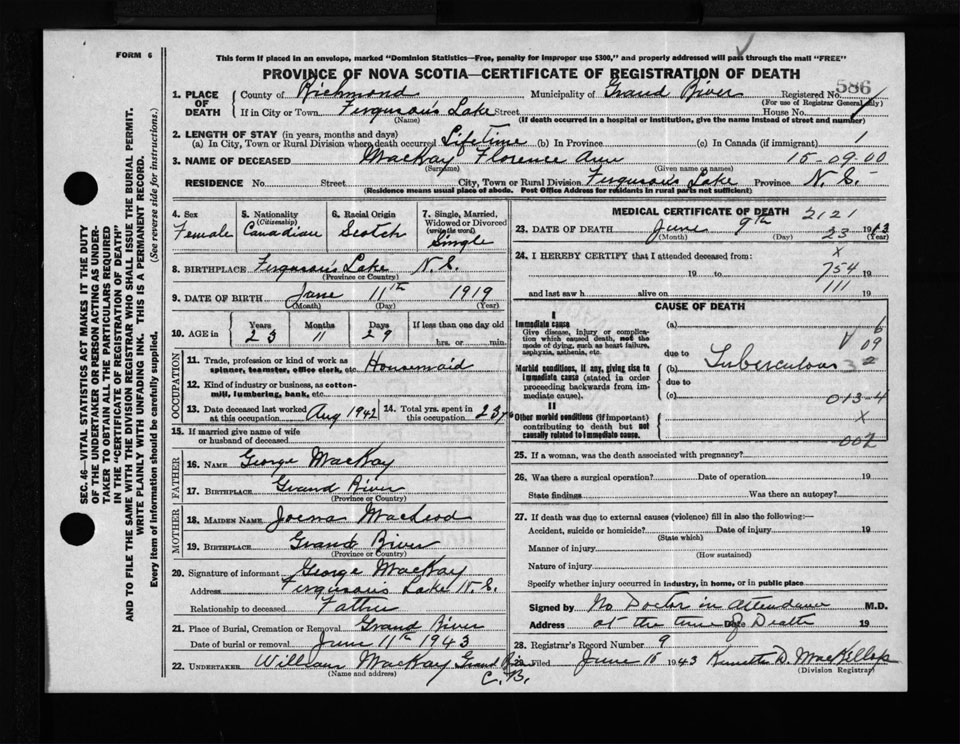 FORM 6
This form if placed in an envelope, marked "Dominion Statistics—Free, penalty for improper use $300," and properly addressed will pass through the mail "FREE"
PROVINCE OF NOVA SCOTIA—CERTIFICATE OF REGISTRATION OF DEATH
586
1. PLACE OF DEATH
County of Richmond Municipality of Grand River Registered No.
(For use of Registrar General only)
If in City or Town Ferguson's Lake Street House No.
(Name) (If death occurred in a hospital or institution, give the name instead of street and number)
2. LENGTH OF STAY (in years, months and days)
(a) In City, Town or Rural Division where death occurred Lifetime (b) In Province (c) In Canada (if immigrant) 1
3. NAME OF DECEASED MacKay Florence Ann 15-09.00
(Surname) (Given name or names)
RESIDENCE No. Street City, Town or Rural Division Ferguson's Lake Province N.S.
(Residence means usual place of abode. Post Office Address for residents in rural parts not sufficient)
4. Sex Female
5. Nationality (Citizenship) Canadian
6. Racial Origin Scotch
7. Single, Married, Widowed or Divorced (write the word) Single
8. BIRTHPLACE Ferguson's Lake N.S.
(Province or Country)
9. DATE OF BIRTH June 11th 1919
(Month) (Day) (Year)
10. AGE in Years Months Days If less than one day old
23 11 29 hrs. or min.
OCCUPATION
11. Trade, profession or kind of work as spinner, teamster, office clerk, etc. Housemaid
12. Kind of industry or business, as cotton-mill, lumbering, bank, etc.
13. Date deceased last worked at this occupation Aug 1942
14. Total yrs. spent in this occupation 23
15. If married give name of wife or husband of deceased
FATHER
16. NAME George MacKay
17. BIRTHPLACE Grand River
(Province or Country)
MOTHER
18. MAIDEN NAME MacLeod
19. BIRTHPLACE Grand River
(Province or Country)
20. Signature of informant George MacKay
Address Ferguson's Lake N.S.
Relationship to deceased Father
21. Place of Burial, Cremation or Removal Grand River
Date of burial or removal June 11th 1943
22. UNDERTAKER William MacKay Grand River
C.B.
(Name and address)
MEDICAL CERTIFICATE OF DEATH 2121
23. DATE OF DEATH June 9th 23 1943
(Month) (Day) (Year)
24. I HEREBY CERTIFY that I attended deceased from: x
19 to 754 19
and last saw h alive on 111 19
CAUSE OF DEATH
I
Immediate cause
Give disease, injury or complication which caused death, not the mode of dying, such as heart failure, asphyxia, asthenia, etc.
(a) 6
09
due to
Morbid conditions, if any, giving rise to immediate cause (stated in order proceeding backwards from immediate cause).
(b) Tuberculous
due to
(c) 013-4
II
Other morbid conditions (if important) contributing to death but not causally related to immediate cause.
x
002
25. If a woman, was the death associated with pregnancy?
26. Was there a surgical operation? Date of operation 19
State findings Was there an autopsy?
27. If death was due to external causes (violence) fill in also the following:—
Accident, suicide or homicide? Date of injury 19
(State which)
Manner of injury
(How sustained)
Nature of injury
Specify whether injury occurred in industry, in home, or in public place
Signed by No Doctor in Attendance M.D.
Address at the time of Death Date 19
28. Registrar's Record Number 9
29. Filed June 10 1943 Kenneth D. MacKillop
(Division Registrar)
SEC. 46—VITAL STATISTICS ACT MAKES IT THE DUTY
OF THE UNDERTAKER OR PERSON ACTING AS UNDER-
TAKER TO OBTAIN ALL THE PARTICULARS REQUIRED
IN THE "CERTIFICATE OF REGISTRATION OF DEATH"
AND TO FILE THE SAME WITH THE DIVISION REGISTRAR WHO SHALL ISSUE THE BURIAL PERMIT.
WRITE PLAINLY WITH UNFADING INK. THIS IS A PERMANENT RECORD.
Every item of information should be carefully supplied. (See reverse side for instructions.)